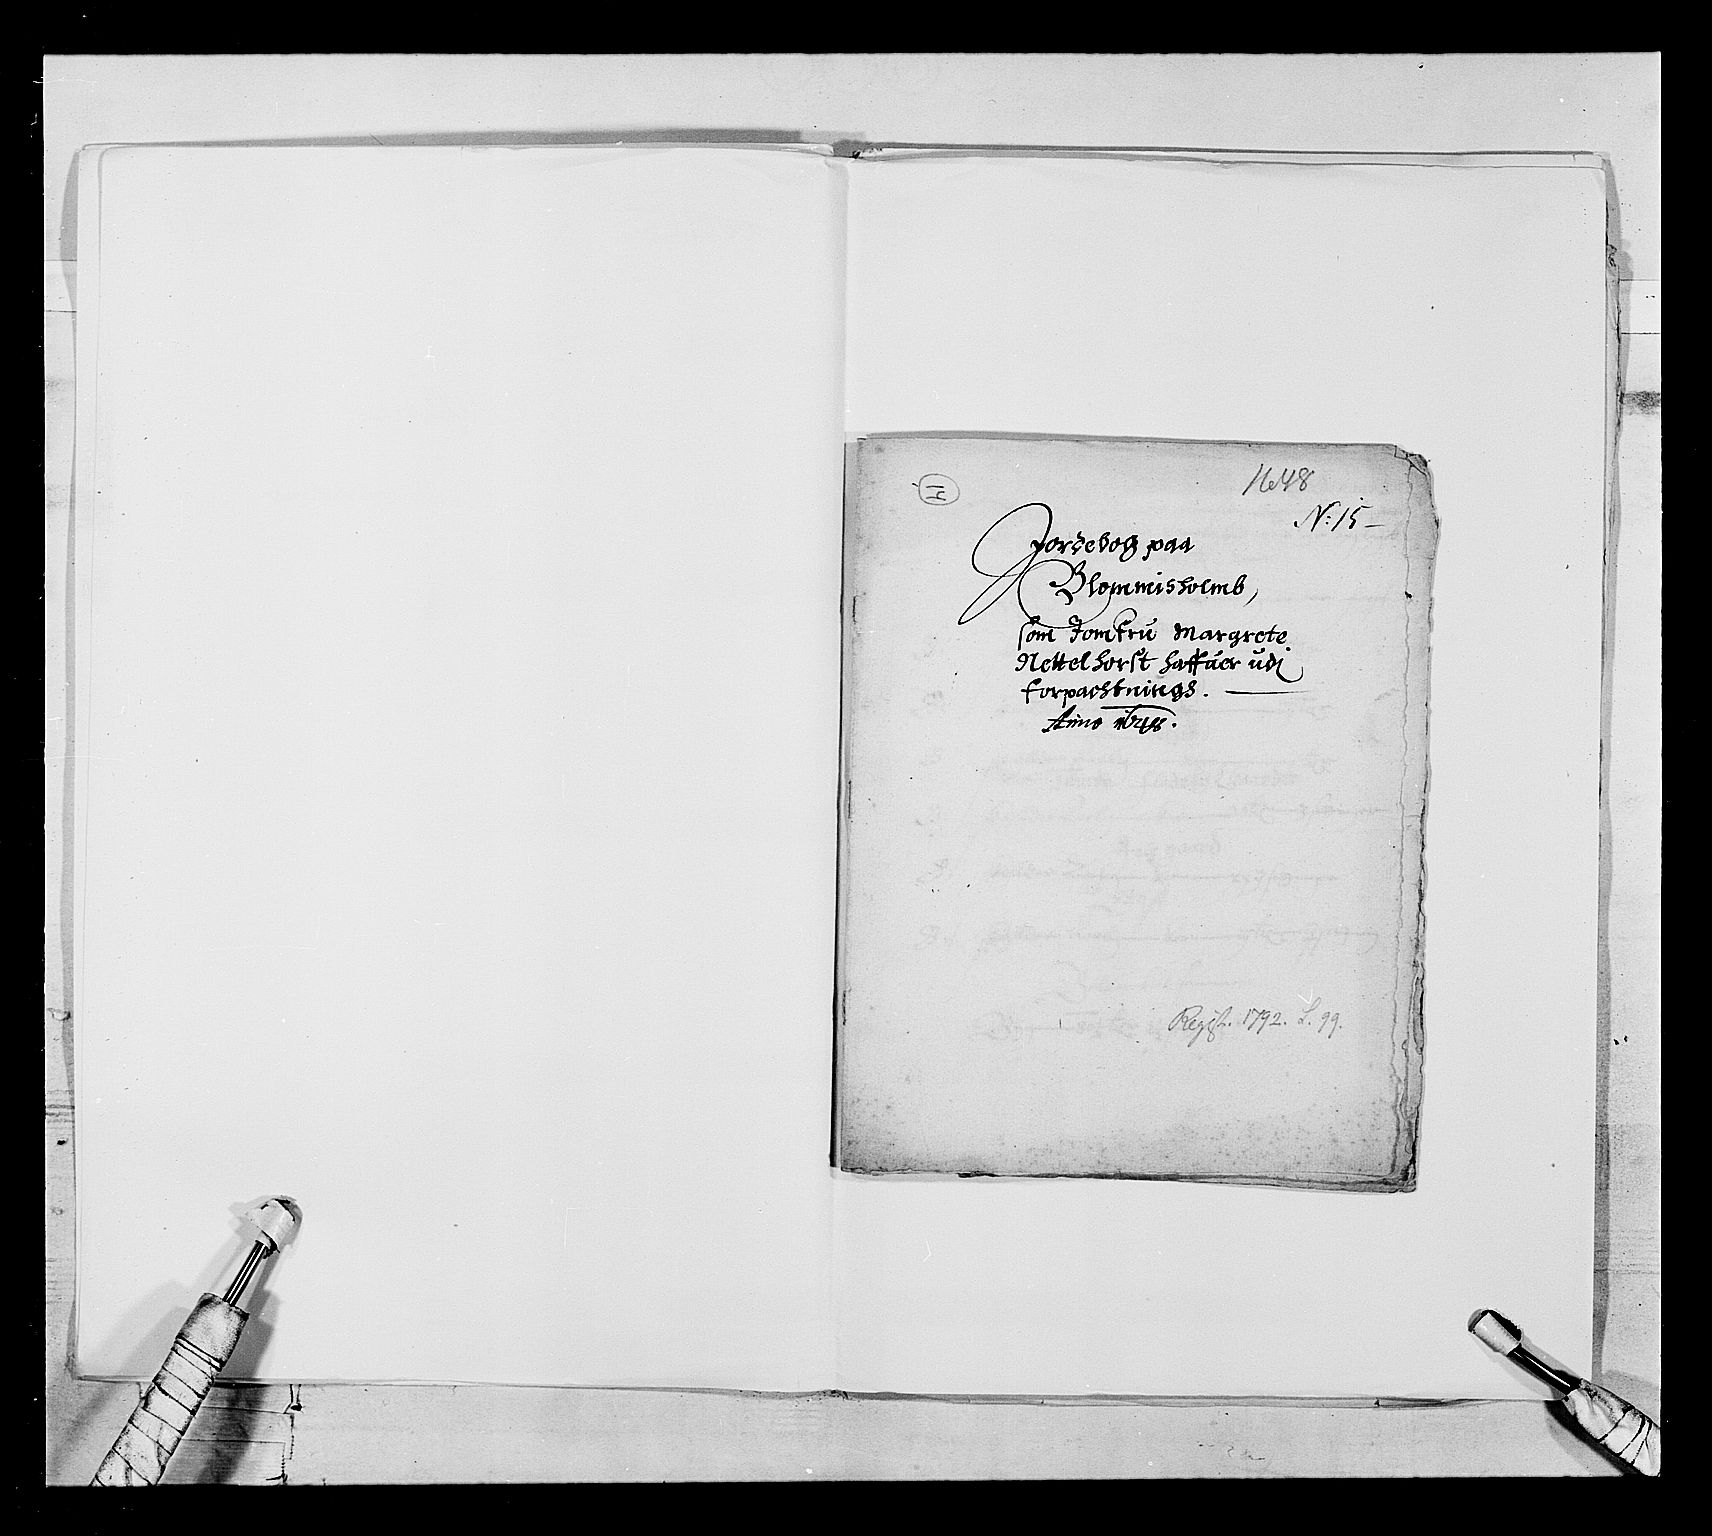 1648
N: 15 –
Jordebog paa
Blommisholmb,
som Jomfru Margrete
Nettelhorst haffuer udi
forpachtnings.
Anno 1648.
Regist. 1792. L. 99.